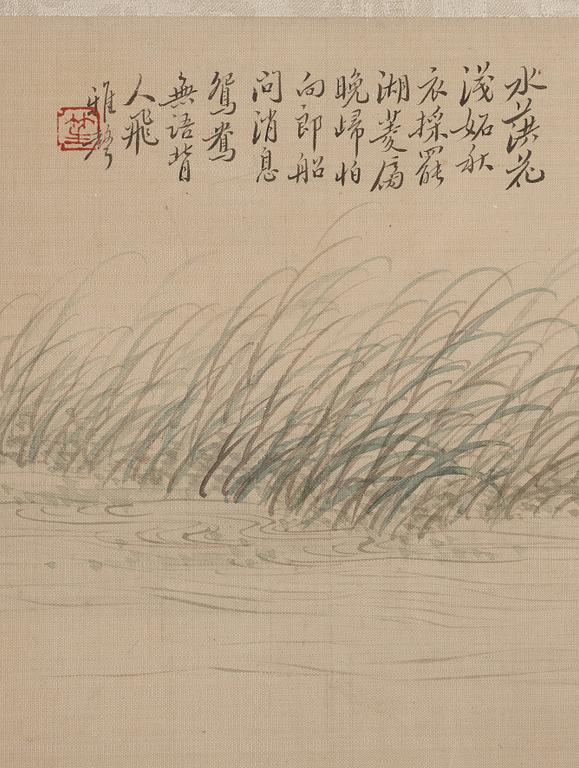 水葓花
淺妬秋
衣採罷
湖菱偏
晚歸怕
向郎船
問消息
鴛鴦
無語背
人飛
雅聲